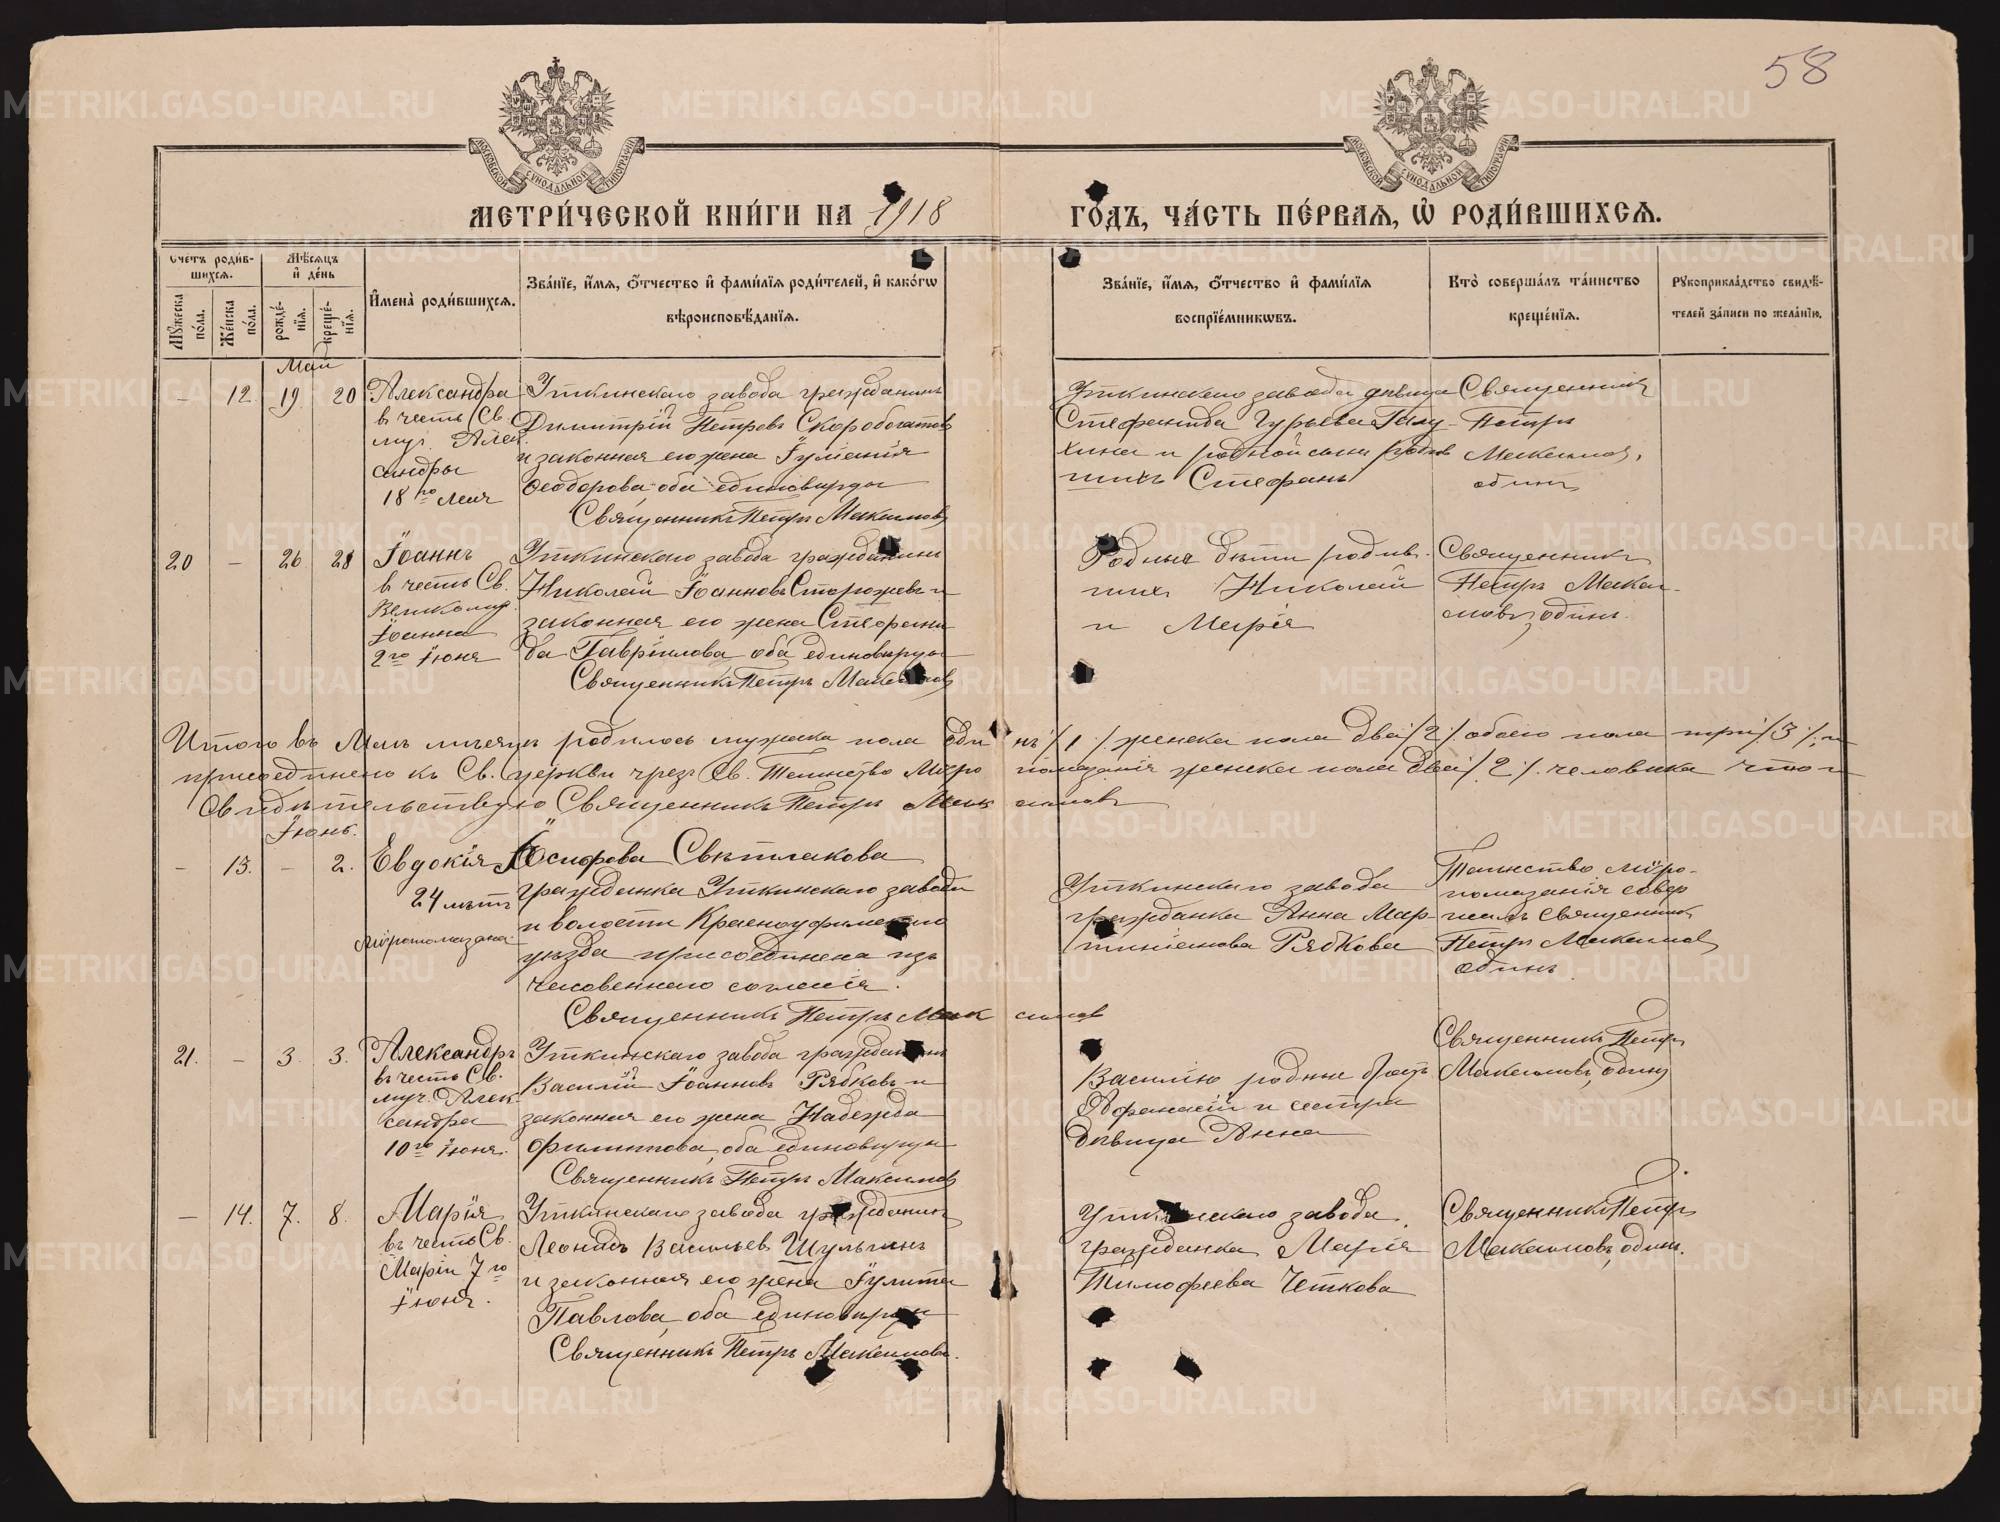 58
МОСКОВСКОЙ СѴНОДАЛЬНОЙ ТИПОГРАФІИ
МОСКОВСКОЙ СѴНОДАЛЬНОЙ ТИПОГРАФІИ
МЕТРИ́ЧЕСКОЙ КНИ́ГИ НА 1918 ГО́ДЪ, ЧА́СТЬ ПЕ́РВАЯ, Ѡ҆ РОДИ́ВШИХСЯ.
Счетъ роди́в-
шихся.
Мѣ́сяцъ
и҆ де́нь
Му́жеска по́ла.
Же́нска по́ла.
рожде́-нїя.
креще́-нїя.
И҆мена̀ роди́вшихся.
Зва́нїе, и҆́мя, ѻ҆́тчество и҆ фами́лїя роди́телей, и҆ како́гѡ
вѣроисповѣ́данїя.
Зва́нїе, и҆́мя, ѻ҆́тчество и҆ фами́лїя
воспрїе́мникѡвъ.
Кто̀ соверша́лъ та́инство
креще́нїя.
Рукоприкла́дство свидѣ́-
телей за́писи по жела́нїю.
Май
– 12. 19. 20
Александра
въ честь Св.
муч. Алек-
сандры
18го Мая
Уткинскаго завода гражданинъ
Димитрій Петровъ Скоробогатовъ
и законная его жена Іуліанія
Ѳеодорова, оба единовѣрцы
Священникъ Петръ Максимовъ
Уткинскаго завода дѣвица
Стефанида Гурьева Галу-
хина и родной сынъ родив
шихъ Стефанъ
Священникъ
Петръ
Максимовъ,
одинъ
20 – 26 28
Іоаннъ
въ честь Св.
Великомуч.
Іоанна
2го Іюня
Уткинскаго завода гражданинъ
Николай Іоанновъ Сторожевъ и
законная его жена Стефани
да Гавріилова оба единовѣрцы
Священникъ Петръ Максимовъ
Родныя дѣти родив-
шихъ Николай
и Марія
Священникъ
Петръ Макси-
мовъ, одинъ.
Итого въ Маѣ мѣсяцѣ родилось мужска пола одинъ /1/ женска пола два /2/ обоего пола три /3/, и
присоединено къ Св. Церкви чрезъ Св. Таинство Мѵропомазанія женска пола два /2/. человѣка что и
Свидѣтельствую Священникъ Петръ Максимовъ
Іюнь.
– 13. – 2.
Евдокія Іосифова Свѣтлакова
24 лѣтъ
Мѵропомазана
гражданка Уткинскаго завода
и волости Красноуфимскаго
уѣзда присоединена изъ
часовеннаго согласія.
Священникъ Петръ Максимовъ
Уткинскаго завода
гражданка Анна Мар-
тиніанова Рябкова
Таинство мѵро-
помазанія совер
шилъ Священникъ
Петръ Максимовъ
одинъ.
21. – 3. 3.
Александръ
въ честь Св.
муч. Алек-
сандра
10го Іюня.
Уткинскаго завода гражданинъ
Василій Іоанновъ Рябковъ и
законная его жена Надежда
Филиппова, оба единовѣрцы
Священникъ Петръ Максимовъ
Василію родные братъ
Афанасій и сестра
дѣвица Анна
Священникъ Петръ
Максимовъ, одинъ
– 14. 7. 8.
Марія
въ честь Св.
Маріи 7го
Іюня.
Уткинскаго завода гражданинъ
Леонидъ Васильевъ Шульгинъ
и законная его жена Іулитта
Павлова, оба единовѣрцы
Священникъ Петръ Максимовъ.
Уткинскаго завода
гражданка Марія
Тимофеева Четкова
Священникъ Петръ
Максимовъ, одинъ.